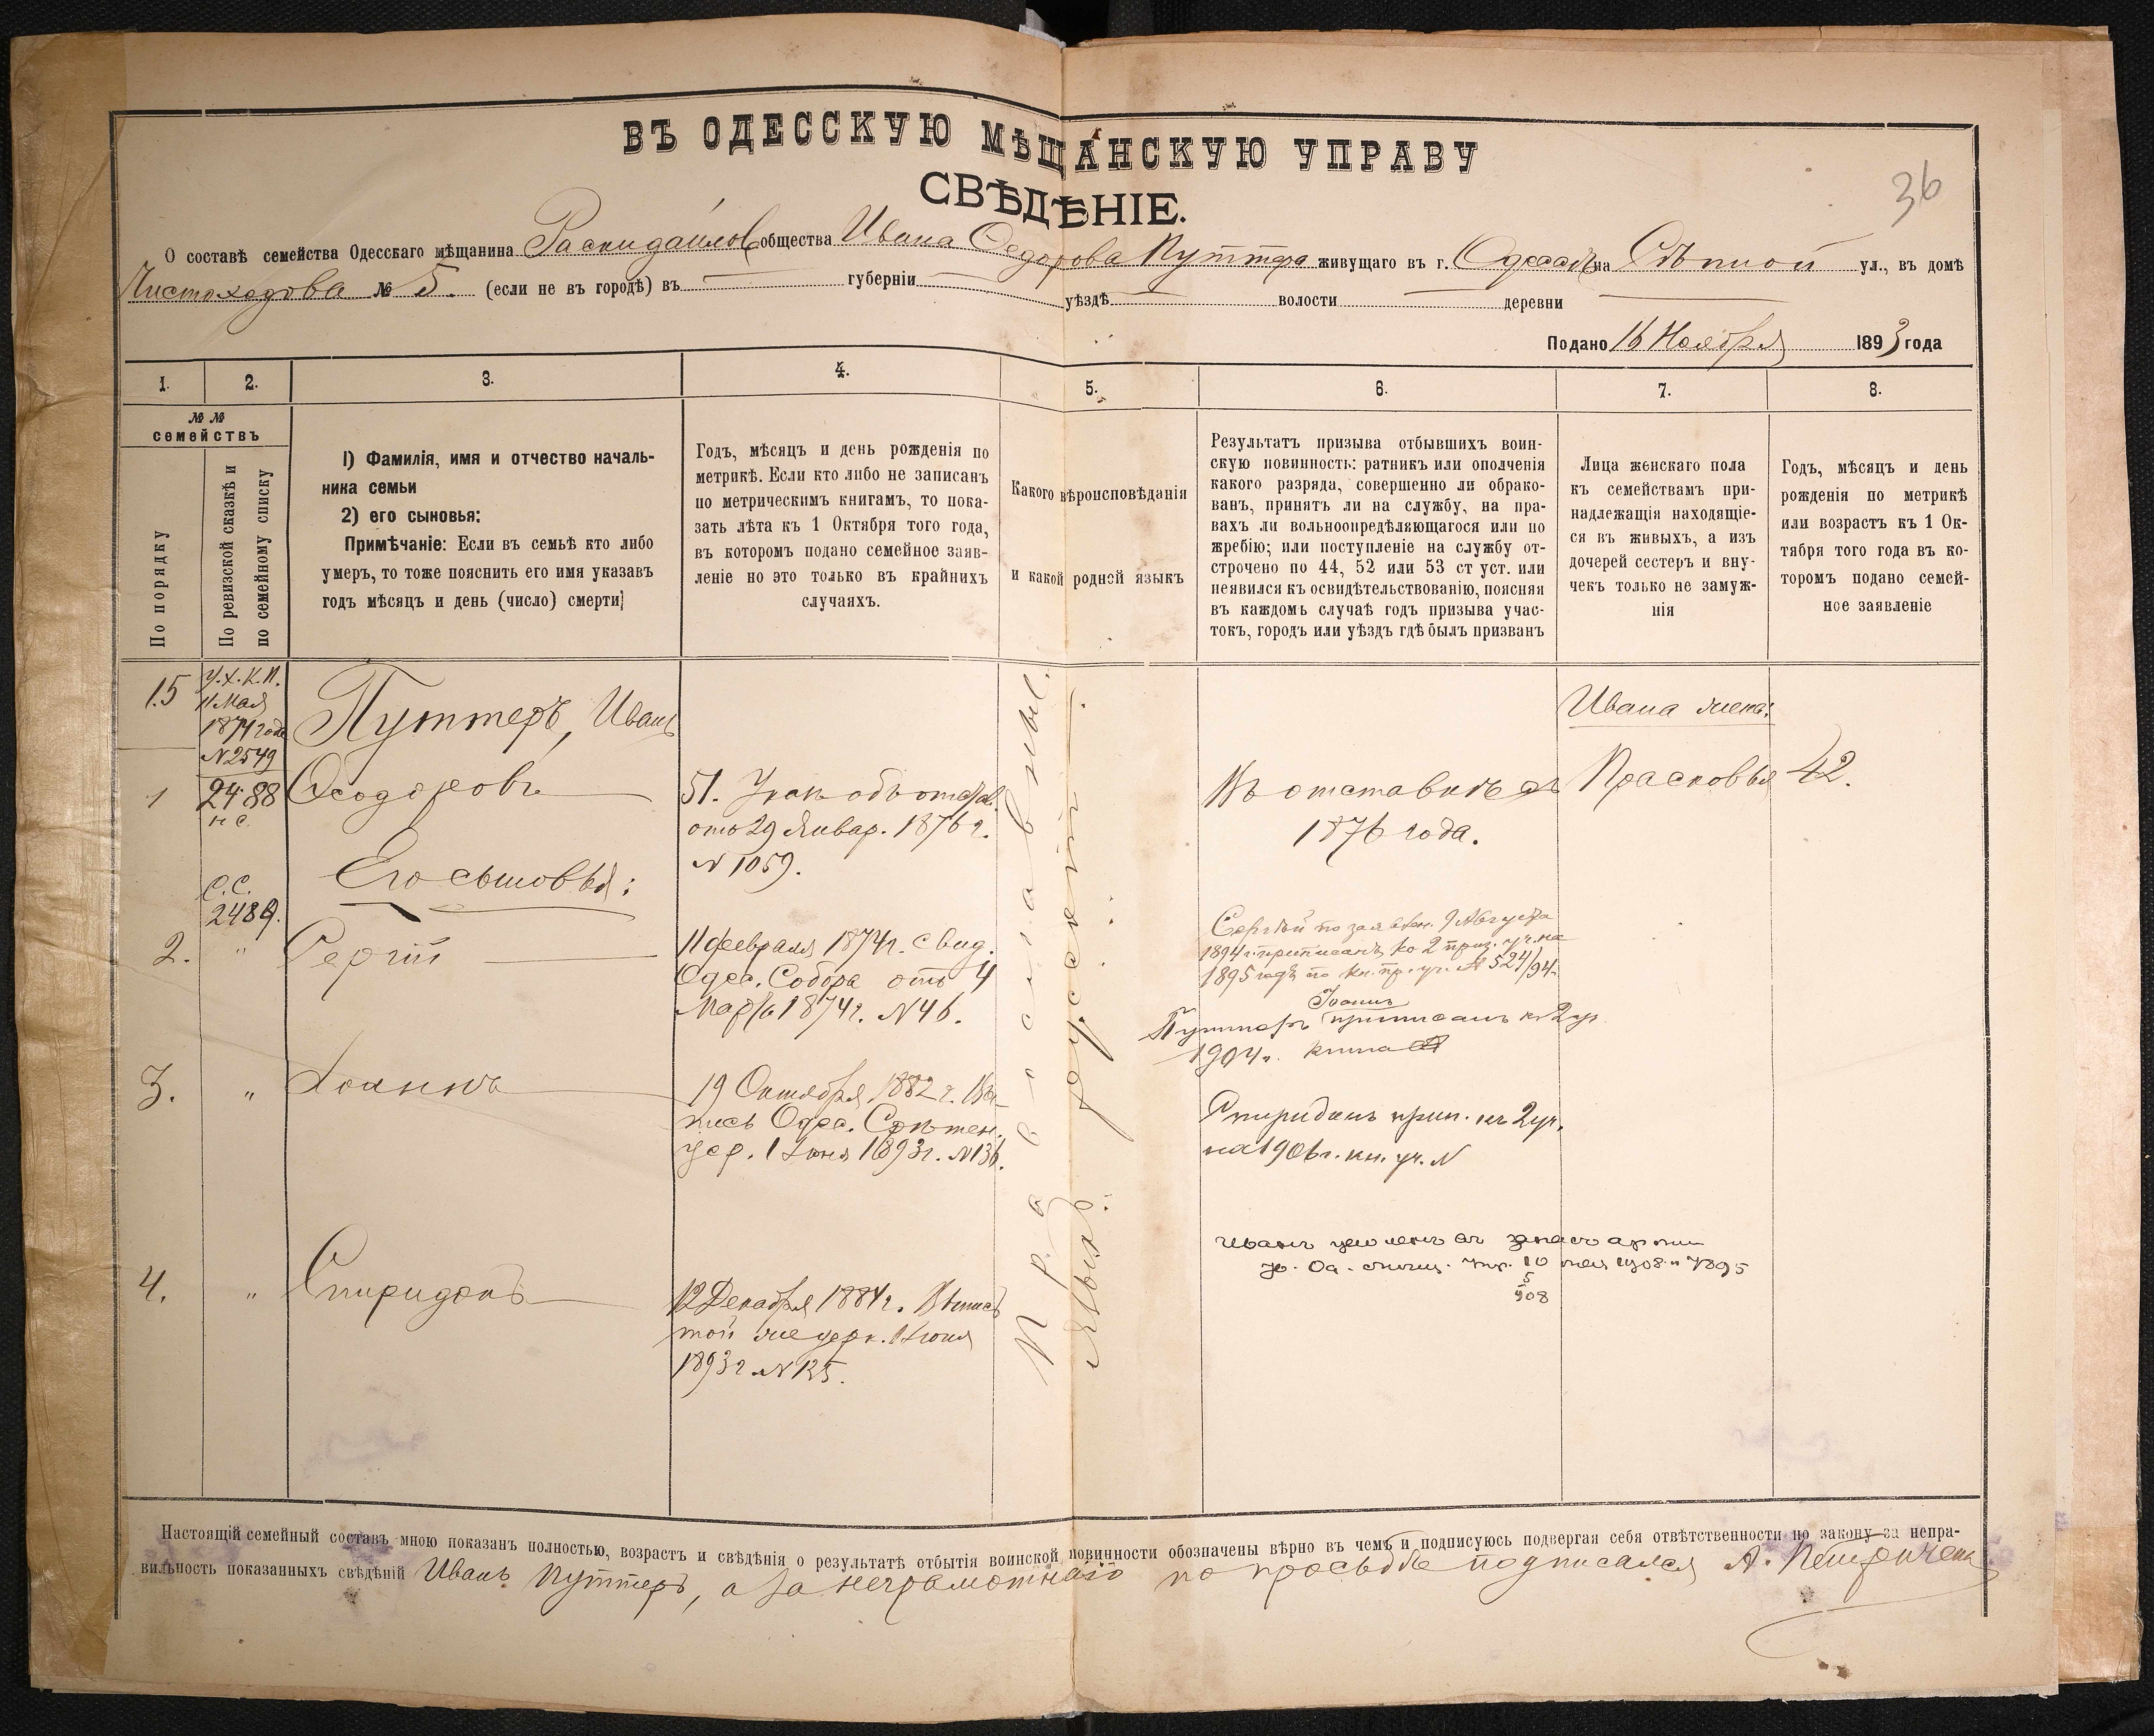 36
ВЪ ОДЕССКУЮ МѢЩАНСКУЮ УПРАВУ
СВѢДѢНІЕ.
О составѣ семейства Одесскаго мѣщанина Раскидайлов общества Ивана Федорова Путтера живущаго въ г. Одессѣ на Слѣпной ул., въ домѣ
Чистоходова № 5. (если не въ городѣ) въ губерніи уѣздѣ волости деревни
Подано 16 Ноября 1893 года
1. 2. 3. 4. 5. 6. 7. 8.
№ №
семействъ
По порядку
По ревизской сказкѣ и
по семейному списку
1) Фамилія, имя и отчество началь-
ника семьи
2) его сыновья:
Примѣчаніе: Если въ семьѣ кто либо
умеръ, то тоже пояснить его имя указавъ
годъ мѣсяцъ и день (число) смерти
Годъ, мѣсяцъ и день рожденія по
метрикѣ. Если кто либо не записанъ
по метрическимъ книгамъ, то пока-
зать лѣта къ 1 Октября того года,
въ которомъ подано семейное заяв-
леніе но это только въ крайнихъ
случаяхъ.
Какого вѣроисповѣданія
и какой родной языкъ
Результатъ призыва отбывшихъ воин-
скую повинность: ратникъ или ополченія
какого разряда, совершенно ли обрако-
ванъ, принятъ ли на службу, на пра-
вахъ ли вольноопредѣляющагося или по
жребію; или поступленіе на службу от-
строчено по 44, 52 или 53 ст уст. или
неявился къ освидѣтельствованію, поясняя
въ каждомъ случаѣ годъ призыва учас-
токъ, городъ или уѣздъ гдѣ былъ призванъ
Лица женскаго пола
къ семействамъ при-
надлежащія находящіе-
ся въ живыхъ, а изъ
дочерей сестеръ и вну-
чекъ только не замуж-
нія
Годъ, мѣсяцъ и день
рожденія по метрикѣ
или возрастъ къ 1 Ок-
тября того года въ ко-
торомъ подано семей-
ное заявленіе
15
У.Х.К.П.
11 Мая
1874 года
N 2549
Путтеръ, Иванъ
Ивана жена:
1
2488
н с.
Ѳеодоровъ
51. Указ объ отстав.
отъ 29 Январ. 1876 г.
N 1059.
Въ отставкѣ съ
1876 года.
Прасковья
42.
Его сыновья:
С.С.
2489.
2.
"
Сергій
11 февраля 1874 г. Свид.
Одес. Собора отъ 4
Марта 1874 г. N 46.
Православные.
языкъ русскій.
Сергѣй по заявлен. 9 Августа
1894 г. приписанъ ко 2 приз. уч. на
1895 годъ по кн. пр. уч. N 524/94.
Іоаннъ
Путтеръ приписанъ къ 2 уч.
1904 г. книга
3.
"
Іоаннъ
19 Октября 1882 г. Вы-
пись Одес. Срѣтен.
цер. 1 Іюня 1893 г. N 136.
Спиридонъ прип. къ 2 уч.
на 1906 г. кн. уч. N
4.
"
Спиридонъ
12 Декабря 1884 г. Выпись
той же церк. 1 Іюня
1893 г. N 135.
Иванъ уволенъ въ запасъ арміи
10 мая 1908 г. N 7895
5
908
Настоящій семейный составъ мною показанъ полностью, возрастъ и свѣдѣнія о результатѣ отбытія воинской повинности обозначены вѣрно въ чемъ и подписуюсь подвергая себя отвѣтственности по закону за непра-
вильность показанныхъ свѣдѣній Иванъ Путтеръ, а за неграмотнаго по просьбѣ подписался А. Петриченко